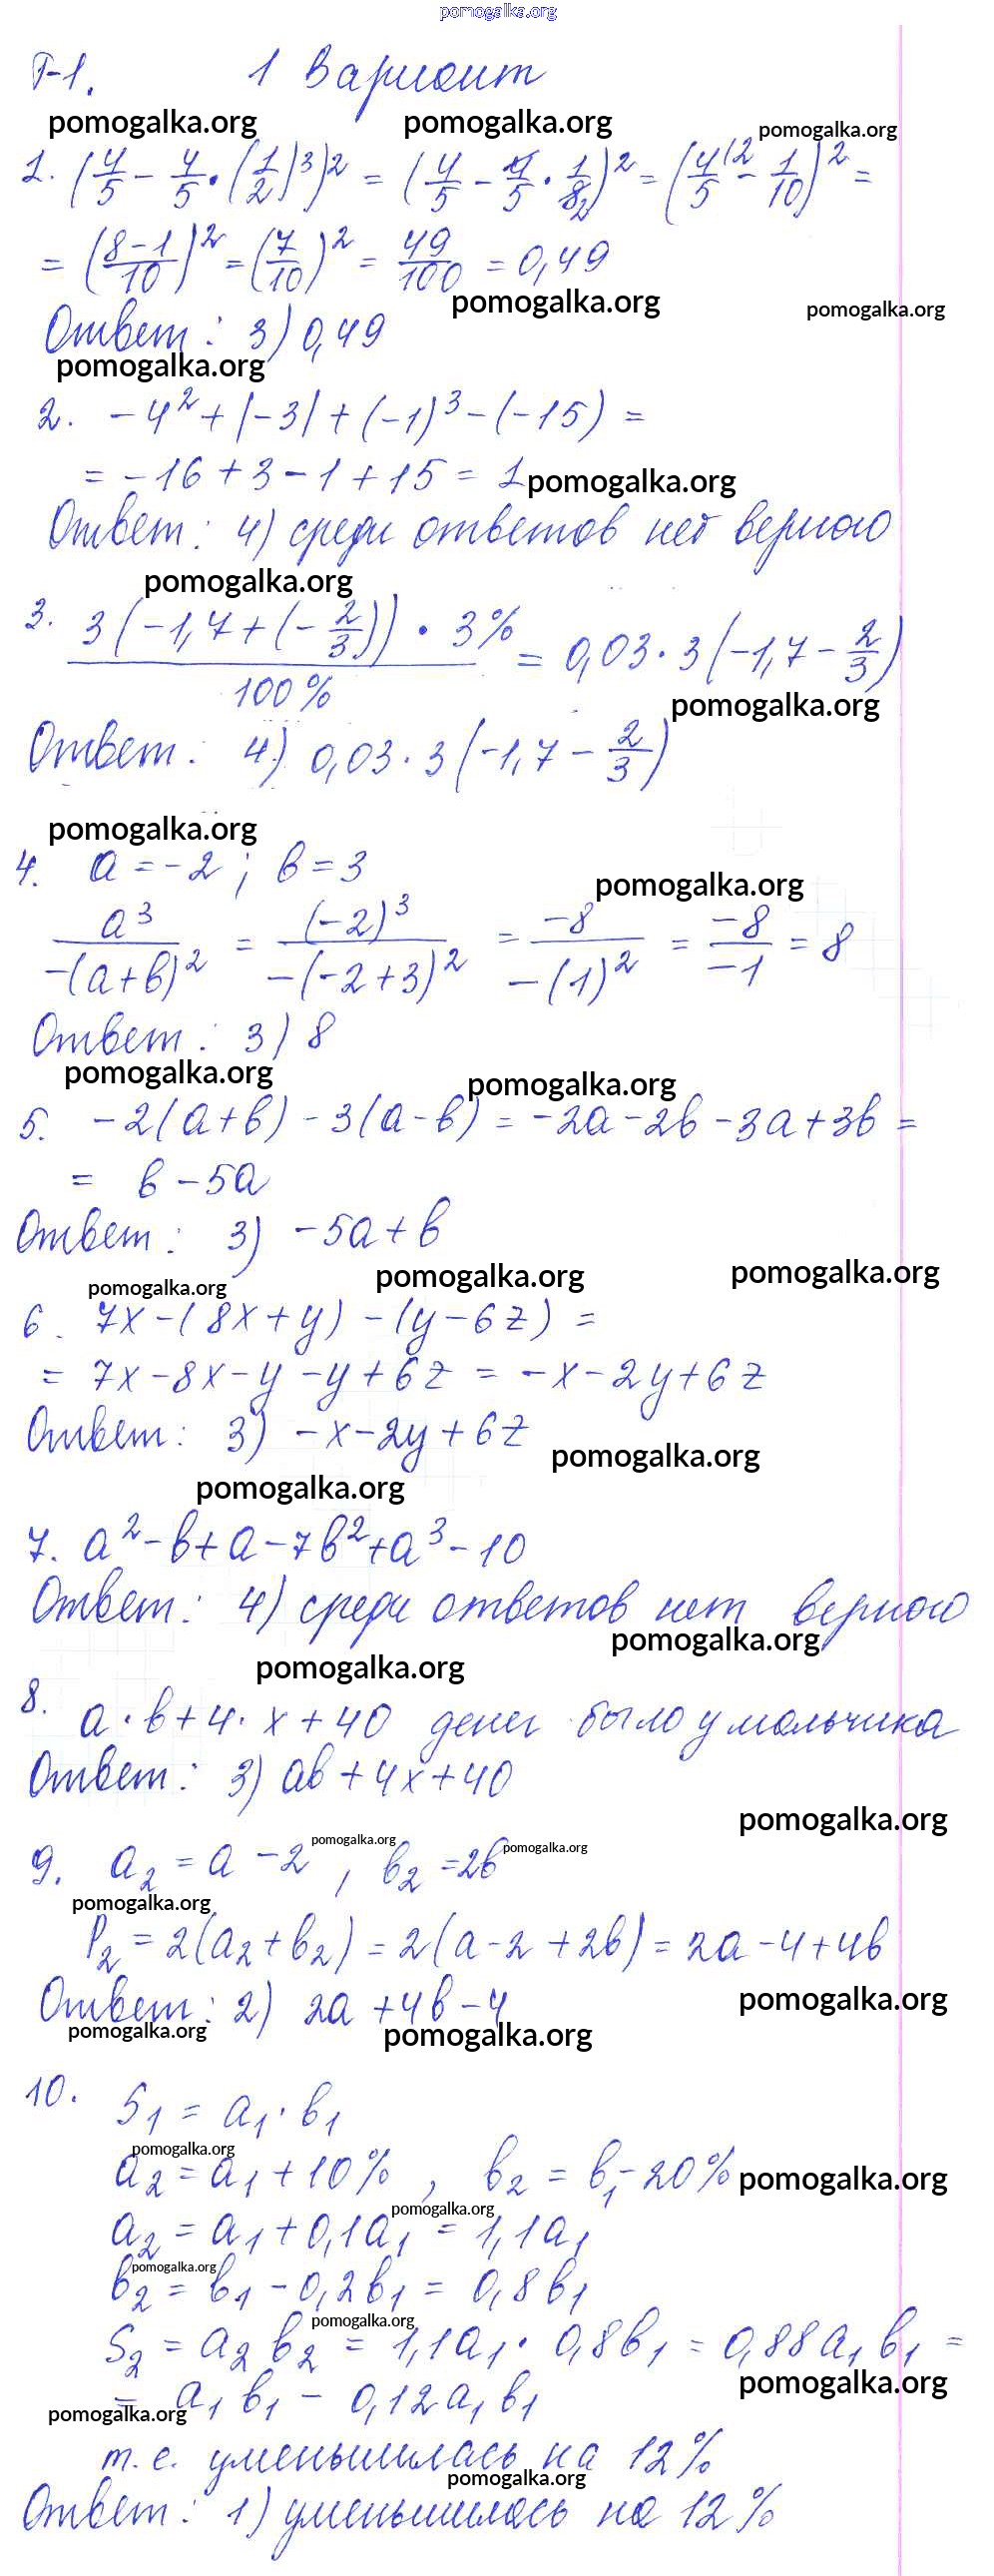 pomogalka.org
Т-1. 1 Вариант
pomogalka.org pomogalka.org pomogalka.org
1. (4/5 - 4/5 · (1/2)³)² = (4/5 - 4/5 · 1/8₂)² = (4/5 ⁽² - 1/10)² =
= ((8-1)/10)² = (7/10)² = 49/100 = 0,49
pomogalka.org pomogalka.org
Ответ: 3) 0,49
pomogalka.org
2. -4² + |-3| + (-1)³ - (-15) =
= -16 + 3 - 1 + 15 = 1
pomogalka.org
Ответ: 4) среди ответов нет верного
pomogalka.org
3. 3(-1,7 + (-2/3)) · 3% / 100% = 0,03 · 3(-1,7 - 2/3)
pomogalka.org
Ответ: 4) 0,03 · 3(-1,7 - 2/3)
pomogalka.org
4. a = -2; b = 3
pomogalka.org
a³/-(a+b)² = (-2)³/-(-2+3)² = -8/-(1)² = -8/-1 = 8
Ответ: 3) 8
pomogalka.org pomogalka.org
5. -2(a+b) - 3(a-b) = -2a - 2b - 3a + 3b =
= b - 5a
Ответ: 3) -5a + b
pomogalka.org pomogalka.org pomogalka.org
6. 7x - (8x+y) - (y-6z) =
= 7x - 8x - y - y + 6z = -x - 2y + 6z
Ответ: 3) -x - 2y + 6z
pomogalka.org
pomogalka.org
7. a² - b + a - 7b² + a³ - 10
Ответ: 4) среди ответов нет верного
pomogalka.org
pomogalka.org
8. a · b + 4 · x + 40 денег было у мальчика
Ответ: 3) ab + 4x + 40
pomogalka.org
pomogalka.org pomogalka.org
9. a₂ = a - 2, b₂ = 2b
pomogalka.org
P₂ = 2(a₂ + b₂) = 2(a - 2 + 2b) = 2a - 4 + 4b
pomogalka.org
Ответ: 2) 2a + 4b - 4
pomogalka.org pomogalka.org
10. S₁ = a₁ · b₁
pomogalka.org
a₂ = a₁ + 10%, b₂ = b₁ - 20%
pomogalka.org
pomogalka.org
a₂ = a₁ + 0,1a₁ = 1,1a₁
pomogalka.org
b₂ = b₁ - 0,2b₁ = 0,8b₁
pomogalka.org
S₂ = a₂ b₂ = 1,1a₁ · 0,8b₁ = 0,88a₁b₁ =
pomogalka.org
= a₁b₁ - 0,12a₁b₁
pomogalka.org
т.е. уменьшилась на 12%
pomogalka.org
Ответ: 1) уменьшилась на 12%